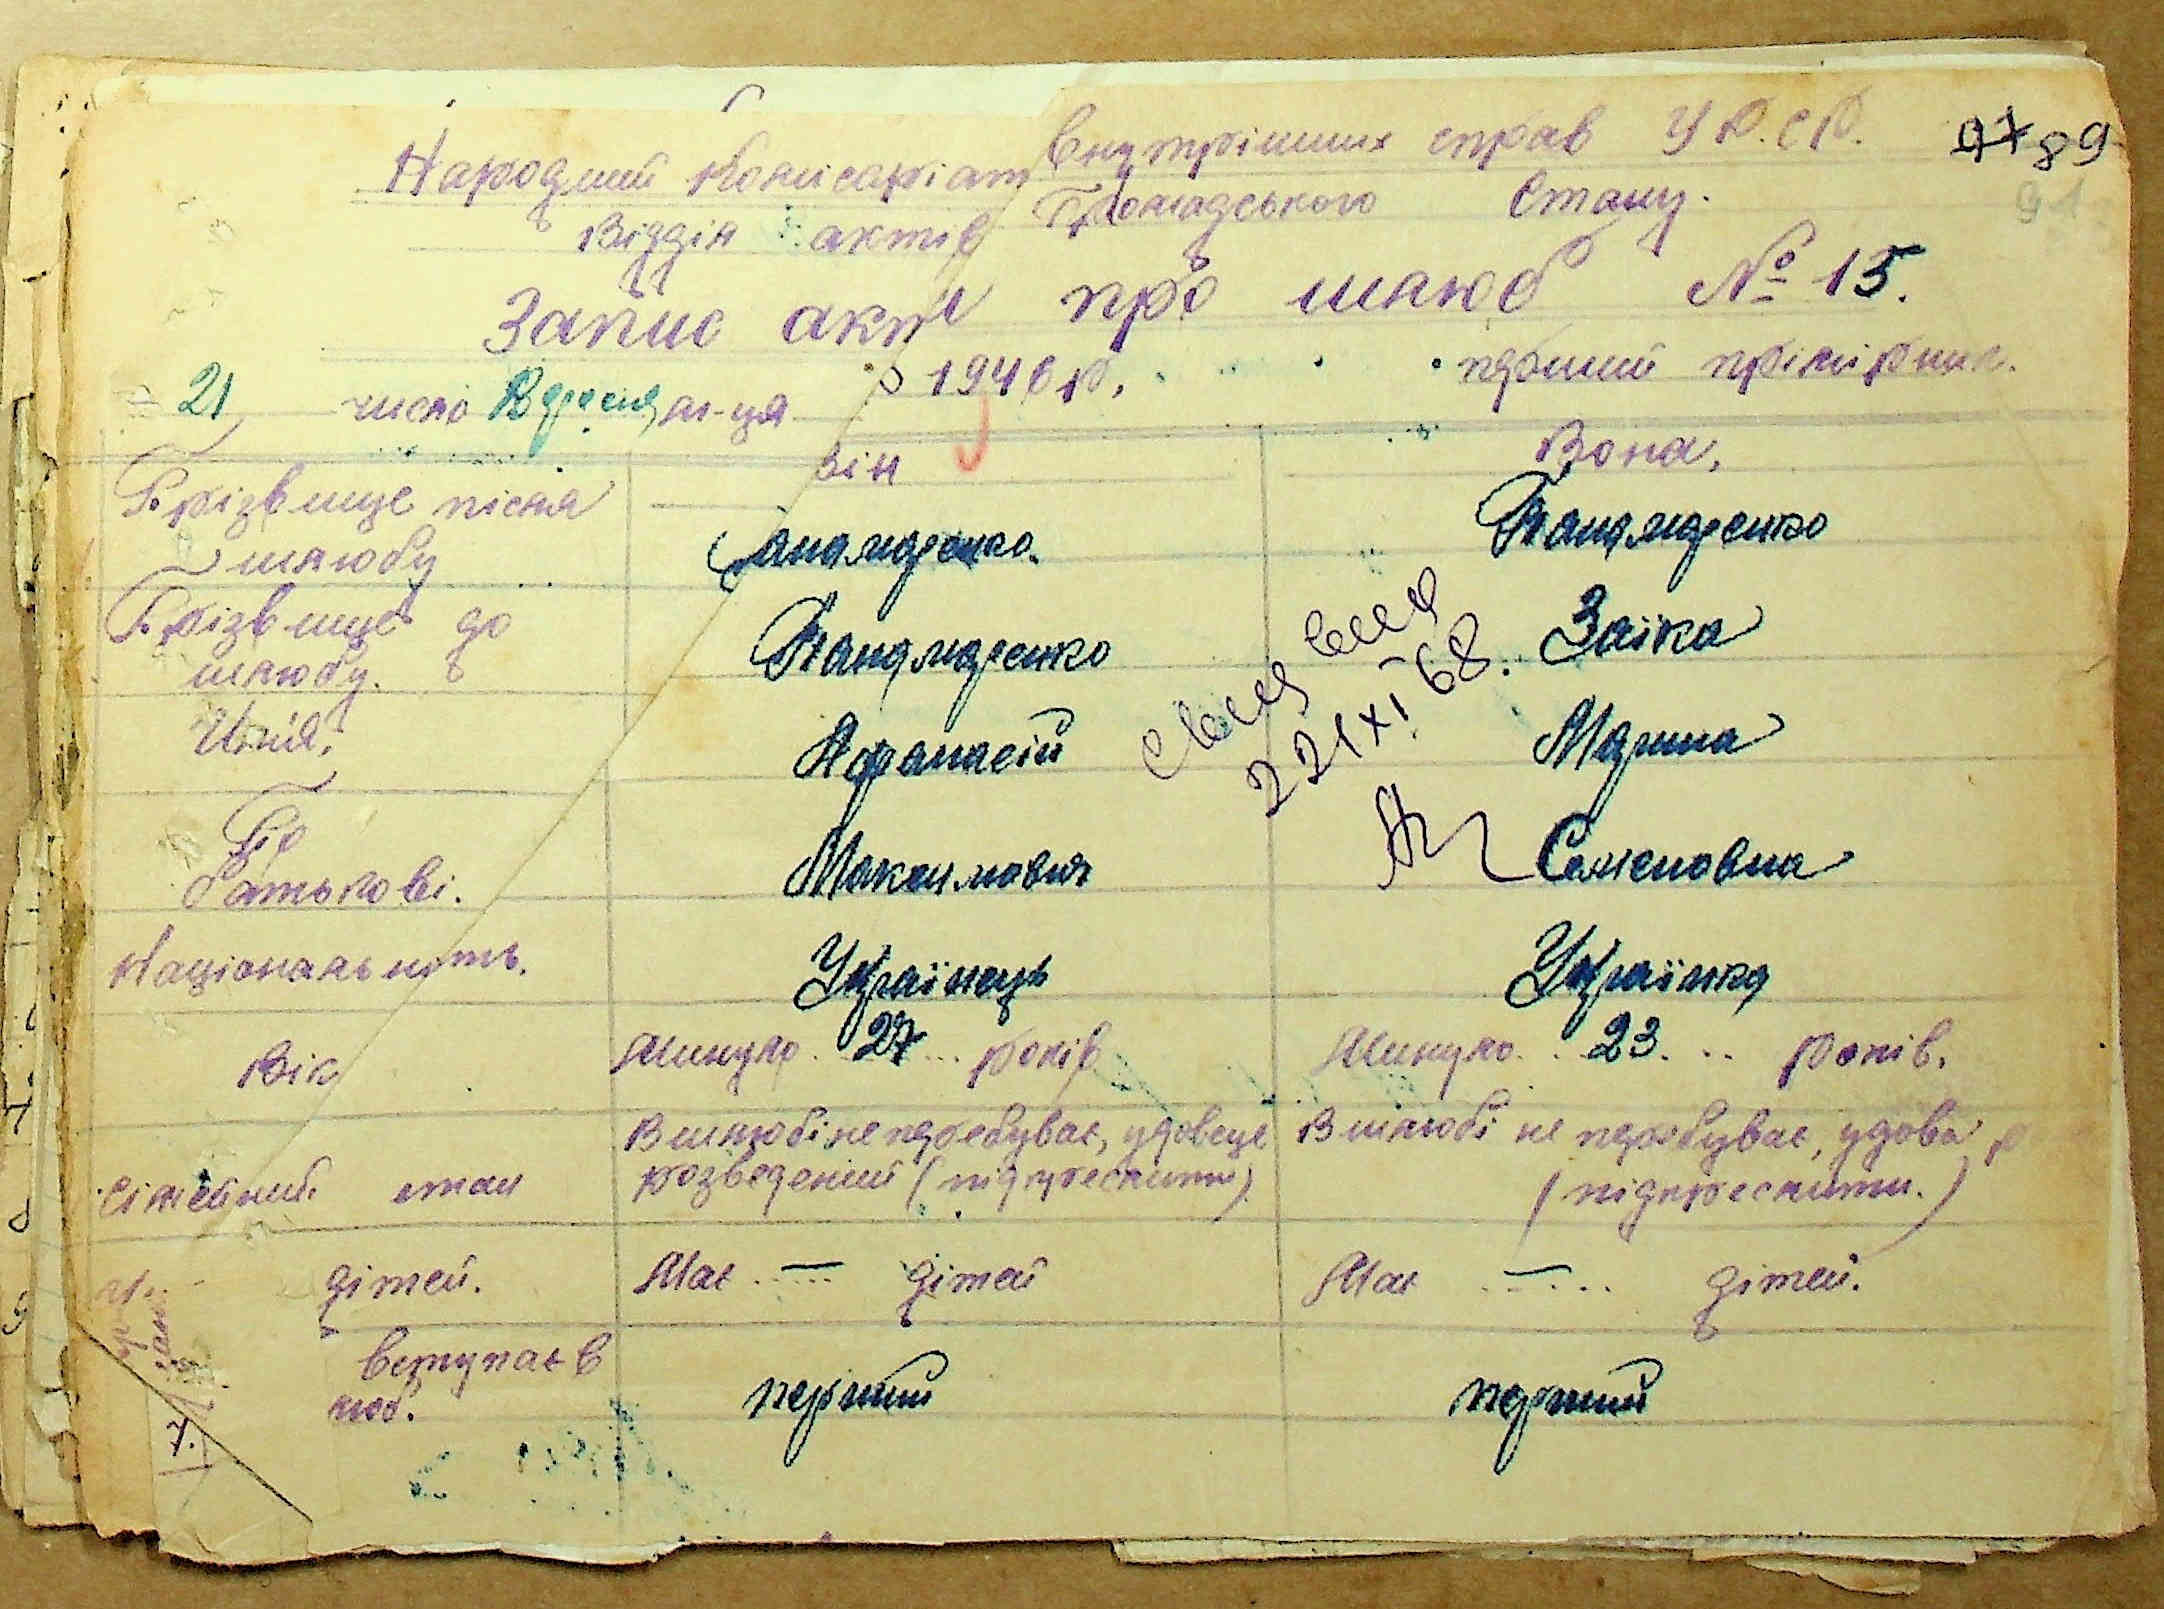 Народний Комісаріат Внутрішніх справ У.Р.С.Р.
97 89
91
Відділ актів Громадського Стану.
Запис акту про шлюб № 15.
21 число Вересня м-ця 1946 р. перший примірник.
Він Вона.
Прізвище після шлюбу
Панамаренко. Панамаренко
Прізвище до шлюбу.
Панамаренко Заїка
Имя.
Афанасій Марина
22/XI-68.
По батькові.
Максимович Семеновна
Національність.
Українець Українка
Вік Минуло 27 років Минуло 23 років.
Сімейний стан
В шлюбі не перебуває, удовець В шлюбі не перебуває, удова
розведений (підкреслити) (підкреслити.)
дітей. Має — дітей Має — дітей.
вступає в
люб.
перший перший
7.